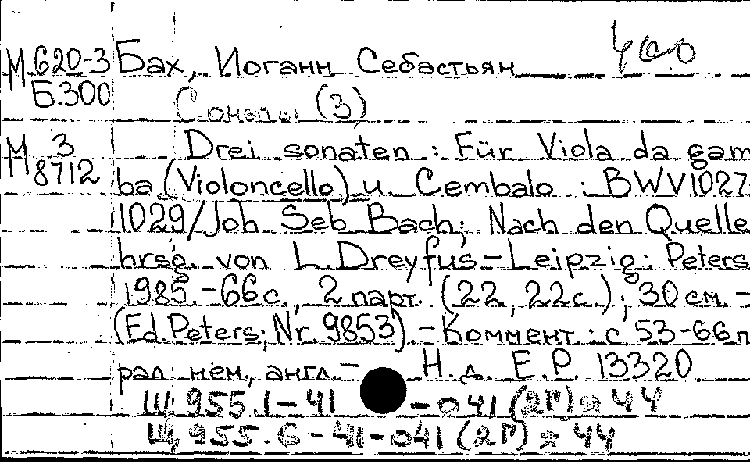 М 620-3 Бах, Иоганн Себастьян
Б.300 Сонаты (3)
М 3 Drei sonaten : Für Viola da gam
8712 ba (Violoncello) u. Cembalo : BWV1027
1029/Joh Seb Bach; Nach den Quelle
hrsg. von L. Dreyfus – Leipzig: Peters
1985. – 66 с., 2 парт. (22, 22 с.); 30 см. –
(Ed. Peters; Nr. 9853). – Коммент.: с 53-66 п
рал нем, англ. – Н. д. Е.Р. 13320
Щ 955.1-41 -041 (2Г) 44
Щ 955.6-41-041 (2Г) 44